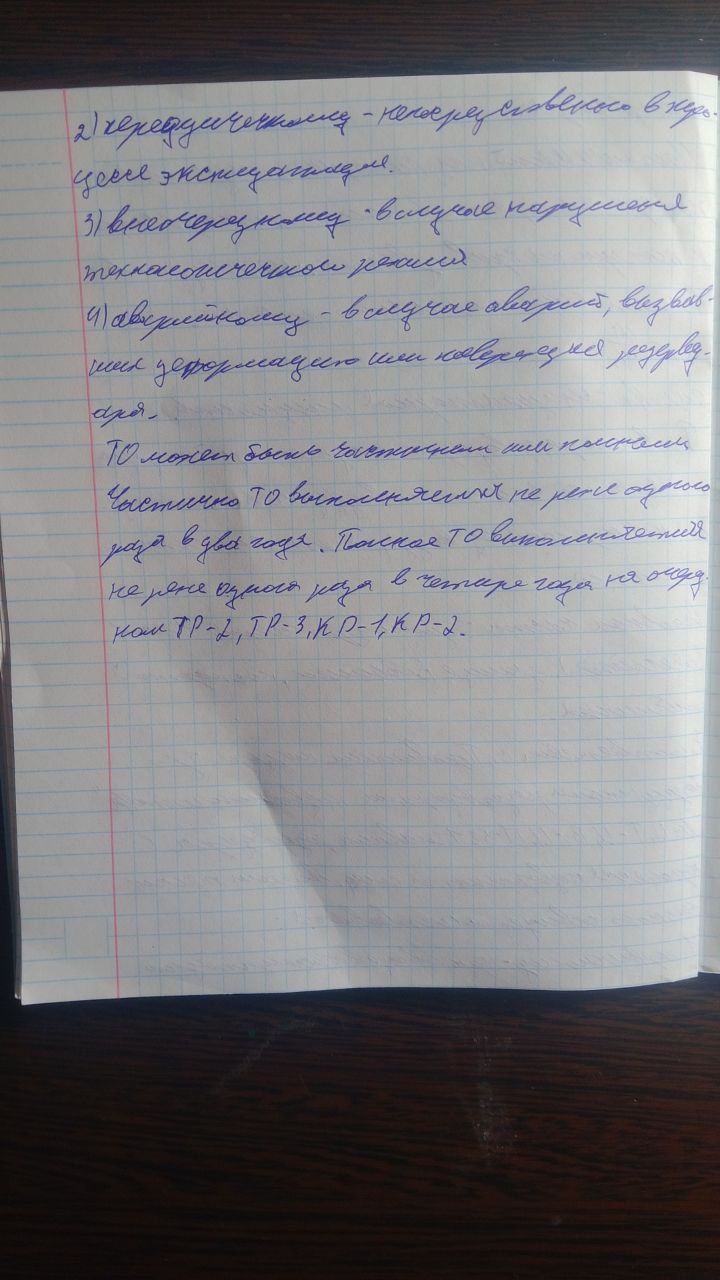 2) переодическому - непосредственно в про-
цессе эксплуатации.
3) внеочередному - в случае нарушения
технологического режима
4) аварийному - в случае аварий, вызвав-
ших деформацию или повреждения резерву-
ара.
ТО может быть частичном или полном
Частично ТО выполняется не реже одного
раза в два года. Полное ТО выполняется
не реже одного раза в четыре года на очеред-
ном ТР-2, ТР-3, КР-1, КР-2.